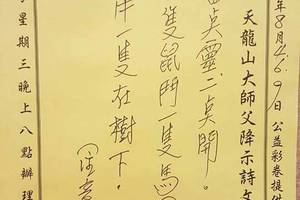 年8月4.6.9日公益彩卷提供
天龍山大師父降示詩文
点靈二点開。
隻鼠鬥一隻馬
一隻在樹下。
注意
星期三晚上八點辦理